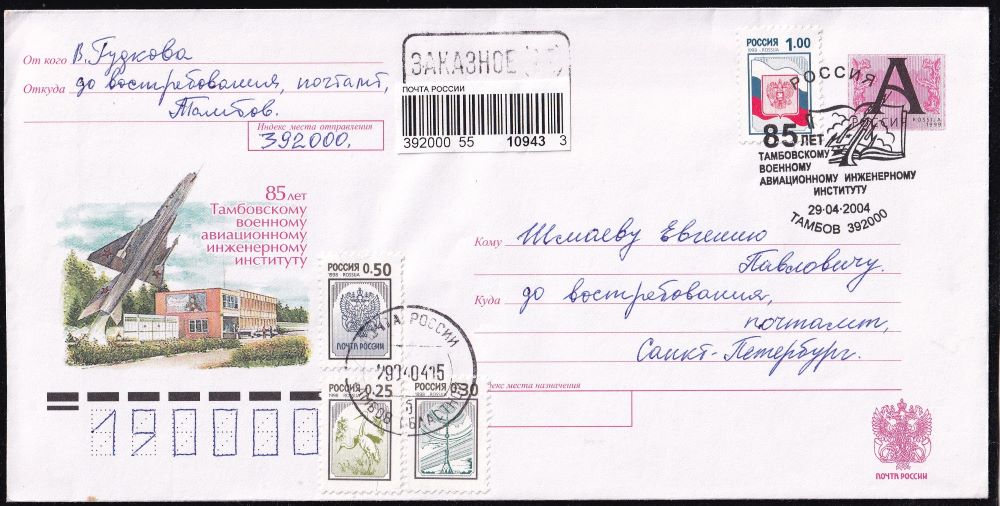 От кого В. Гудкова
Откуда до востребования, почтамт,
Тамбов.
Индекс места отправления
392000.
ЗАКАЗНОЕ
ПОЧТА РОССИИ
392000 55 10943 3
РОССИЯ 1.00
1998 · ROSSIJA
РОССИЯ
А
РОССИЯ ROSSIJA
1999
85 ЛЕТ
ТАМБОВСКОМУ
ВОЕННОМУ
АВИАЦИОННОМУ ИНЖЕНЕРНОМУ
ИНСТИТУТУ
29·04·2004
ТАМБОВ 392000
85 лет
Тамбовскому
военному
авиационному
инженерному
институту
Кому Шмаеву Евгению
Павловичу.
Куда до востребования,
почтамт,
Санкт-Петербург.
декс места назначения
РОССИЯ 0.50
1998 · ROSSIJA
ПОЧТА РОССИИ
ПОЧТА РОССИИ
ТАМБОВ ОБЛАСТНОЙ
РОССИЯ 0.25
1998 · ROSSIJA
РОССИЯ 0.30
1998 · ROSSIJA
190000
ПОЧТА РОССИИ